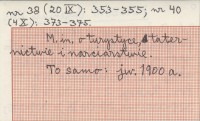 nr 38 (20 IX): 353-355; nr 40
(4 X): 373-375.
M. in. o turystyce, tater-
nictwie i narciarstwie.
To samo: jw. 1900 a.